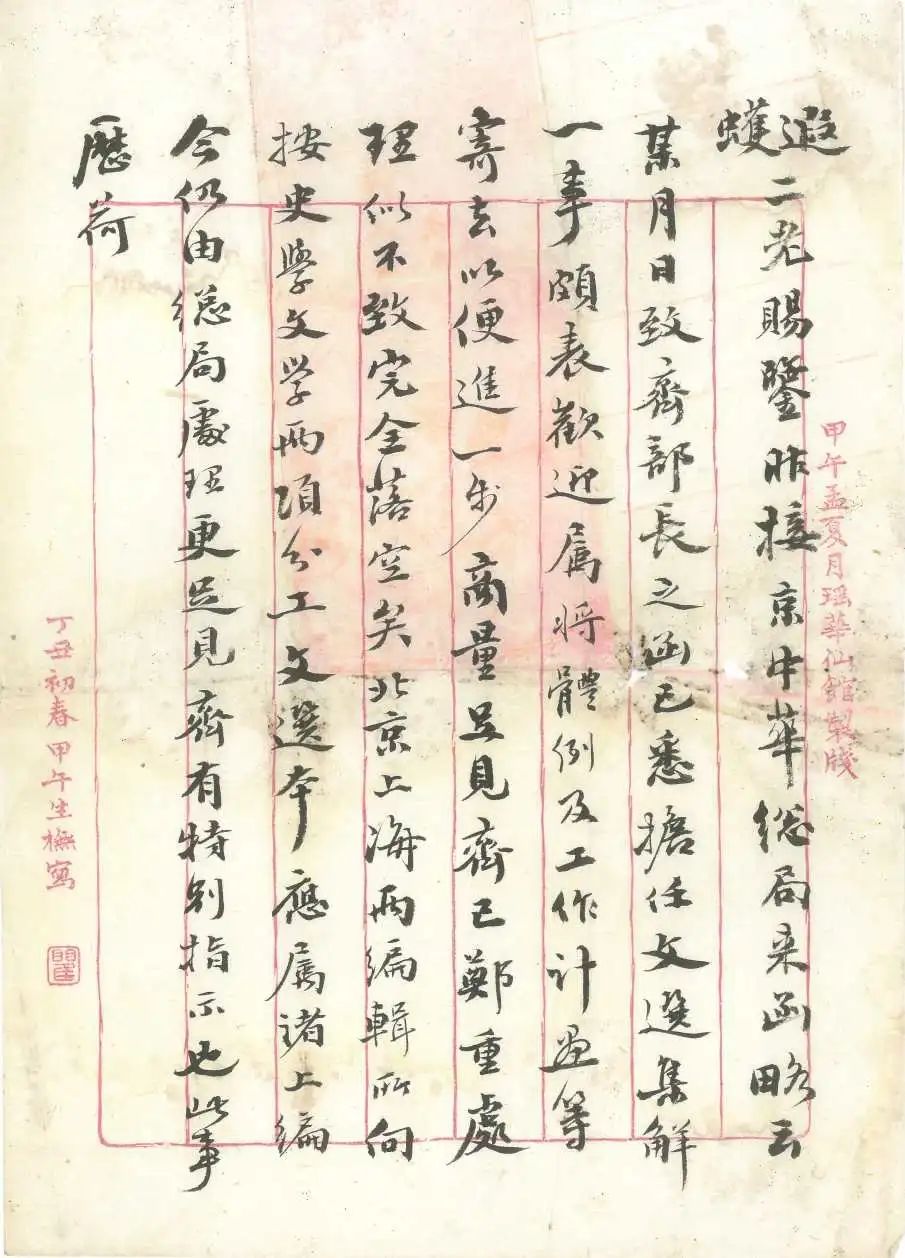 遐
蠖二老賜鑒昨接京中華總局来函略云
某月日致齊部長之函已悉擔任文選集解
一事頗表歡迎属将體例及工作计画等
寄去以便進一步商量足見齊已鄭重處
理似不致完全落空矣北京上海两编輯所向
按史學文学两項分工文選本應属諸上编
今仍由總局處理更足見齊有特别指示也此事
歷荷
甲午孟夏月瑶華仙館製牋
丁丑初春甲午生橅寫